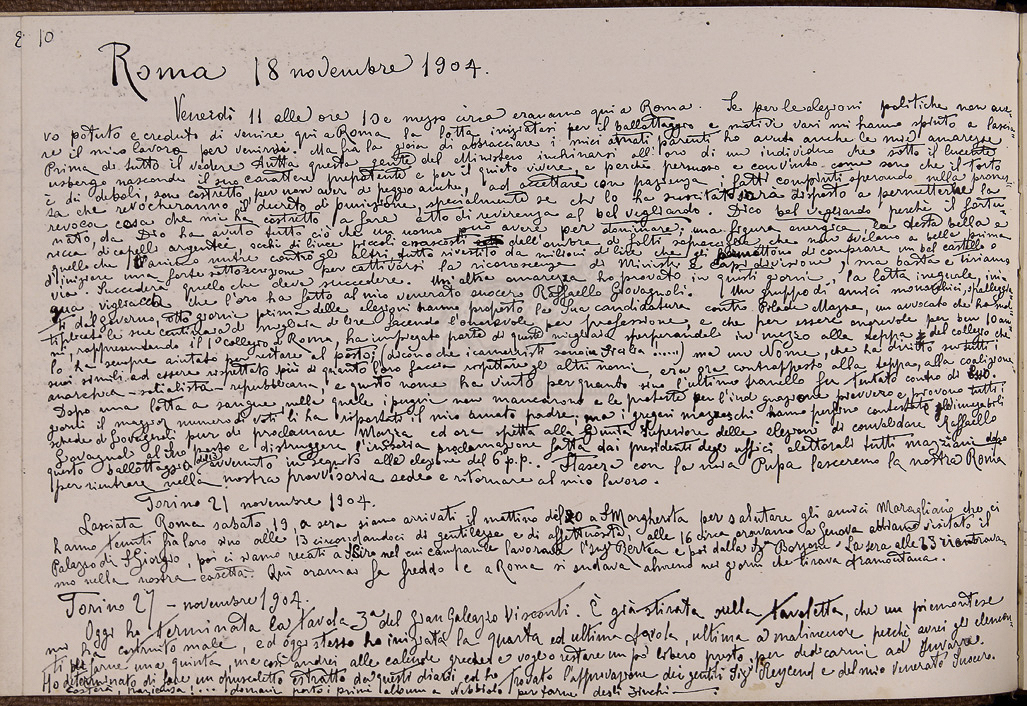 8 10
Roma 18 novembre 1904.
Venerdì 11 alle ore 10 e mezzo circa eravamo qui a Roma. Se per le elezioni politiche non ave
vo potuto e creduto di venire qui a Roma la lotta iniziatasi per il ballottaggio e motivi vari mi hanno spinto a lascia
re il mio lavoro per venirvi. Ma fra la gioia di abbracciare i miei amati parenti ho avuto anche le mie amarezze
Prima di tutto il vedere tutta questa gente del Ministero inchinarsi all'oro di un individuo che sotto il lucente
usbergo nasconde il suo carattere prepotente e per il quieto vivere, e perchè persuaso e convinto come sono che il torto
è di deboli, sono costretto per non aver di peggio anche, ad accettare con pazienza i fatti compiuti sperando nella promes
sa che revocheranno il decreto di punizione, specialmente se chi lo ha suscitato sarà disposto a permetterne la
revoca cosa che mi ha costretto a fare atto di reverenza al bel vegliardo. Dico bel vegliardo perchè il fortu
nato, da Dio ha avuto tutto ciò che un uomo può avere per dominare; una figura energica, la testa bella e
ricca di capelli argentei, occhi di lince piccoli e nascosti dell'ombra di folti sopracciglia che non svelano a bella prima
quello che l'animo nutre contro gli altri, tutto rivestito da milioni di lire che gli permettono di comprare un bel castello o
d'iniziare una forte sottoscrizione per cattivarsi la riconoscenza di Ministri e capi divisione! Ma basta e tiriamo
via. Succederà quello che deve succedere. Un'altra amarezza ho provato in questi giorni, la lotta ineguale, ini
qua vigliacca che l'oro ha fatto al mio venerato suocero Raffaello Giovagnoli. Un gruppo di amici monarchici, spalleggia
ti dal governo, otto giorni prima delle elezioni hanno proposto la sua candidatura contro Pilade Mazza, un avvocato che ha mol
tiplicato le sue centinaia di migliaia di lire facendo l'onorevole per professione, e che per essere onorevole per ben 10 an
ni, rappresentando il 1° collegio di Roma, ha impiegato parte di queste migliaia sperperandole in mezzo alla teppa del collegio che
lo ha sempre aiutato per restare al posto; (dicono che i camorristi sono in Sicilia .....) ma un Nome, che ha diritto su tutti i
suoi simili ad essere rispettato più di quanto loro faccia rispettare gli altri nomi, era ora contrapposto alla teppa, alla coalizione
anarchica - socialista - repubblicana, e questo nome ha vinto per quanto sino l'ultimo tranello fu tentato contro di Esso.
Dopo una lotta a sangue nella quale i pugni non mancarono e le proteste per l'indignazione piovvero e provano tutti i
giorni il maggior numero di voti li ha riportati il mio amato padre, ma i gregari mazzeschi hanno perfino contestato gl'innegabili
schede di Giovagnoli pur di proclamare Mazza, ed ora spetta alla Giunta Superiore delle elezioni di convalidare Raffaello
Giovagnoli al suo posto e distruggere l'irrisoria proclamazione fatta dai presidenti degli uffici elettorali tutti mazziani dopo
questo ballottaggio del 13 avvenuto in seguito alle elezioni del 6 p.p.. Stasera con la mia Pupa lasceremo la nostra Roma
per rientrare nella nostra provvisoria sede e ritornare al mio lavoro.
Torino 21 novembre 1904.
Lasciata Roma sabato, 19, a sera siamo arrivati il mattino del 20 a S. Margherita per salutare gli amici Maragliano che ci
hanno tenuti fra loro sino alle 13 circondandoci di gentilezze e di affettuosità, alle 16 circa eravamo a Genova abbiamo visitato il
Palazzo di S. Giorgio, poi ci siamo recati a S. Siro nel cui campanile lavorava l'Ing. Bertea e poi dalla Sig. Borzone. La sera alle 23 rientrava
mo nella nostra casetta. Qui oramai fa freddo e a Roma si sudava almeno nei giorni che tirava tramontana.
Torino 27 - novembre 1904.
Oggi ho terminata la tavola 3a del Gian Galeazzo Visconti. È già stirata sulla tavoletta, che un piemontese
mi ha costruito male, ed oggi stesso ho iniziata la quarta ed ultima tavola, ultima a malincuore perchè avrei gli elemen
ti per farne una quinta, ma così andrei alle calende greche e voglio restare un po' libero presto, per dedicarmi ad Invarie.
Ho determinato di fare un opuscoletto estratto da questi diari, ed ho trovato l'approvazione dei gentili Sig. Reycend e del mio Venerato Suocero.
Costerà, pazienza!... domani porto i primi l'album a Nebbiolo per farne degli zinchi.